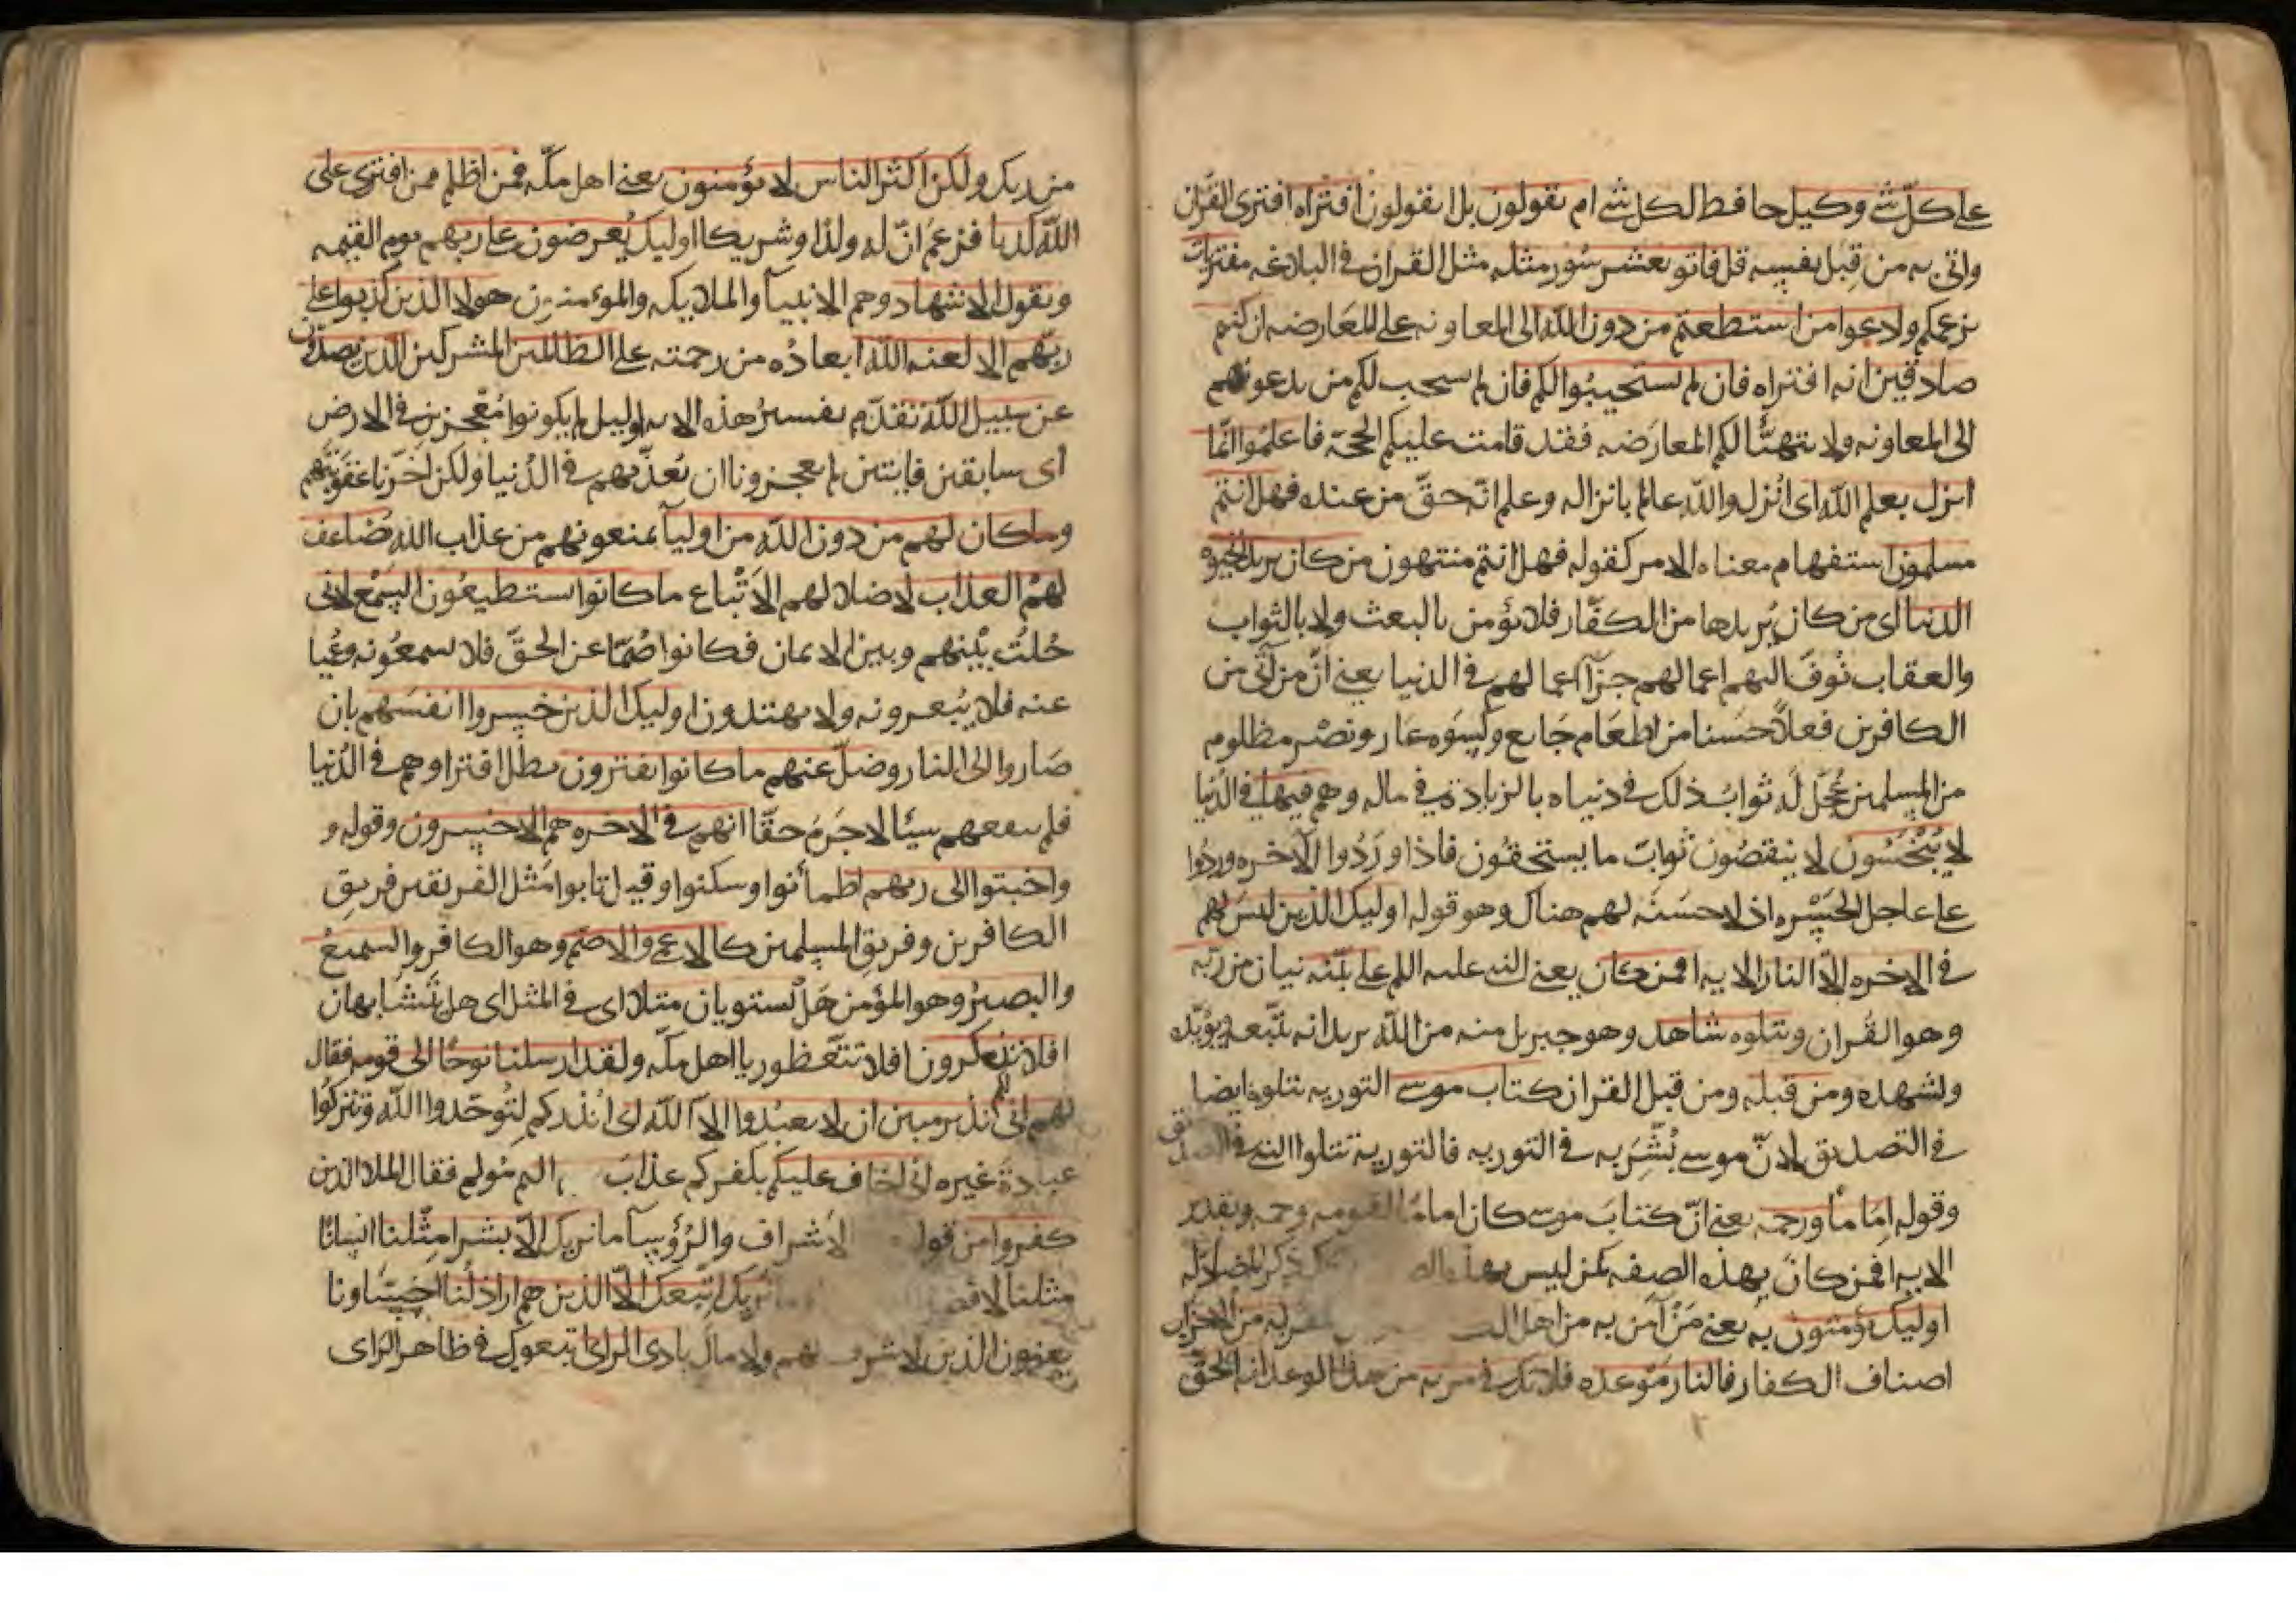 على كل شي وكيل حافظ لكل شي ام يقولون بل ايقولون افتراه افترى القران
واتى به من قبل نفسه قل فاتو بعشر سور مثله مثل القران في البلاغه مفتريات
بزعمكم ولادعوا من استطعتم من دون الله الى المعاونه على المعارضه ان كنتم
صادقين انه افتراه فان لم يستجيبوا لكم فان لم يستجب لكم من يدعونهم
الى المعاونه ولا يتهيّأ لكم المعارضه فقد قامت عليكم الحجة فاعلموا انّما
انزل بعلم الله اى انزل والله عالم بانزاله وعلم انّه حقّ من عنده فهل انتم
مسلمون استفهام معناه الامر كقوله فهل انتم منتهون من كان يريد الحيوه
الدنيا اى من كان يريدها من الكفّار فلا يؤمن بالبعث ولا بالثواب
والعقاب نوفّ اليهم اعمالهم جزآ اعمالهم في الدنيا يعنى انّ من اتى من
الكافرين فعلاً حسنا من اطعام جايع وكسوه عار ونصر مظلوم
من المسلمين عُجّل له ثواب ذلك في دنياه بالزيادة في ماله وهم فيها في الدنيا
لا يُبْخَسون لا ينقصون ثوابَ ما يستحقون فاذا وَرَدُوا الآخره وردوا
على عاجل الحسره اذ لا حسنه لهم هناك وهو قوله اوليك الذين ليس لهم
في الاخره الّا النار الايه افمن كان يعنى النبي عليه السلم على بيّنه بيان من ربّه
وهو القُران ويتلوه شاهد وهو جبريل منه من الله يريد انه يتّبعه ويؤيّده
ويشهده ومن قبله ومن قبل القران كتاب موسى التوريه يتلوه ايضا
في التصديق لانّ موسى بُشّر به في التوريه فالتورية تتلوا النبي في التصديق
وقوله اماما ورحمه يعنى انّ كتابَ موسى كان اماما لقومه ورحمه وتقدير
الايه افمن كان بهذه الصفه كمن ليس بهذه ذكر المضادّ له
اوليك يؤمنون به يعنى مَنْ آمن به من اهل به من الاحزاب
اصناف الكفار فالنار موعده فلا تك في مريه من هذا الوعد انه الحقّ
من ربك ولكن اكثر الناس لا يؤمنون يعنى اهل مكّه فمن اظلم ممن افترى على
الله كذبا فزعم انّ له ولدًا وشريكا اوليك يُعرضون على ربهم يوم القيمه
ويقول الاشهاد وهم الانبيآ والملايكه والمؤمنون هولا الذين كذبوا على
ربّهم الا لعنه الله ابعادُه من رحمته على الظالمين المشركين الذين يصدّون
عن سبيل الله تقدّم تفسيرُ هذه الايه اوليك لم يكونوا مُعْجزين في الارض
أى سابقين فايتين لم يعجزونا ان نُعذّبهم في الدُنيا ولكن اخّرنا عقوبتهم
وما كان لهم من دون الله من اوليآ يمنعونهم من عذاب الله يضاعف
لهمُ العذاب لاضلالهم الاَتْباع ما كانوا يستطيعون السّمع لانى
حُلتُ بيْنهم وبين الايمان فكانوا صُمّا عن الحقّ فلا يسمعُونه وعُميا
عنه فلا يُبصرونه ولا يهتدون اوليك الذين خسروا انفسَهم بان
صَاروا الى النار وضلّ عنهم ما كانوا يفترون بطل افتراوهم في الدُنيا
فلم ينفعهم شيئا لا جَرَمَ حقّا انهم في الاخره هم الاخسرون وقوله و
واخبتوا الى ربهم اطمأنوا وسكنوا وقيل تابوا مَثل الفريقين فريق
الكافرين وفريق المسلمين كالاعمى والاصَمّ وهو الكافر والسميعُ
والبصيرُ وهو المؤمن هَلْ يستويان مثلا اى في المثل اى هل يَتشَابهان
افلا تذكرون افلا تتّعظون يا اهل مكّه ولقد ارسلنا نوحًا الى قومه فقال
لهم انى لكم نذير مبين ان لا يعبُدوا الاّ الله اى انذركم لتُوحّدوا الله وتتركُوا
عبادةَ غيره انى اخاف عليكم بكفركم عذابَ اليم مُولم فقال الملا الذين
كفروا من قومه الاَشراف والرُؤسآ ما نريك الاّ بشرا مِثْلنا انسانًا
مثلنا لا فضل نريك اتبعك الاّ الذين هم اراذلُنا اخِسّاونا
يعنون الذين لا شرف لهم ولا مالَ بادى الراى اتبعوك في ظاهر الرَاى